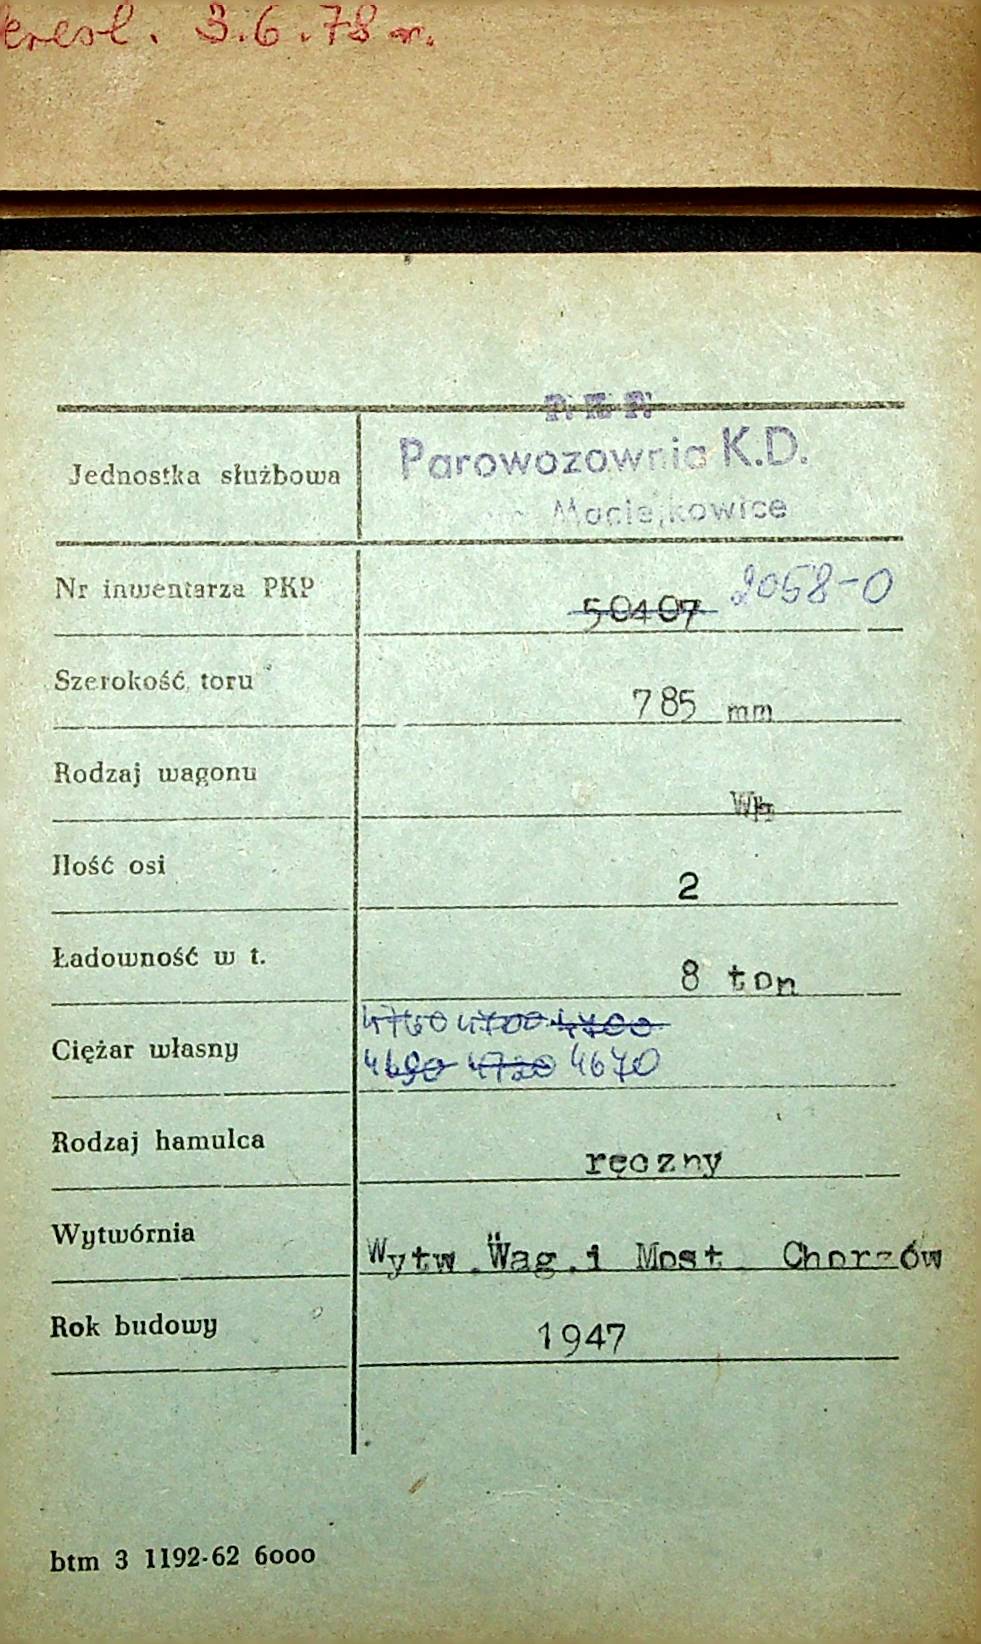 kreśl. 3.6.78 r.
P.K.P.
Jednostka służbowa Parowozownia K.D.
Maciejkowice
Nr inwentarza PKP 50407 2058-0
Szerokość toru 785 mm
Rodzaj wagonu
Ilość osi 2
Ładowność w t. 8 ton
4700 4700
Ciężar własny
4690 4720 4670
Rodzaj hamulca ręczny
Wytwórnia Wytw.Wag.i Most. Chorzów
Rok budowy 1947
btm 3 1192-62 6000